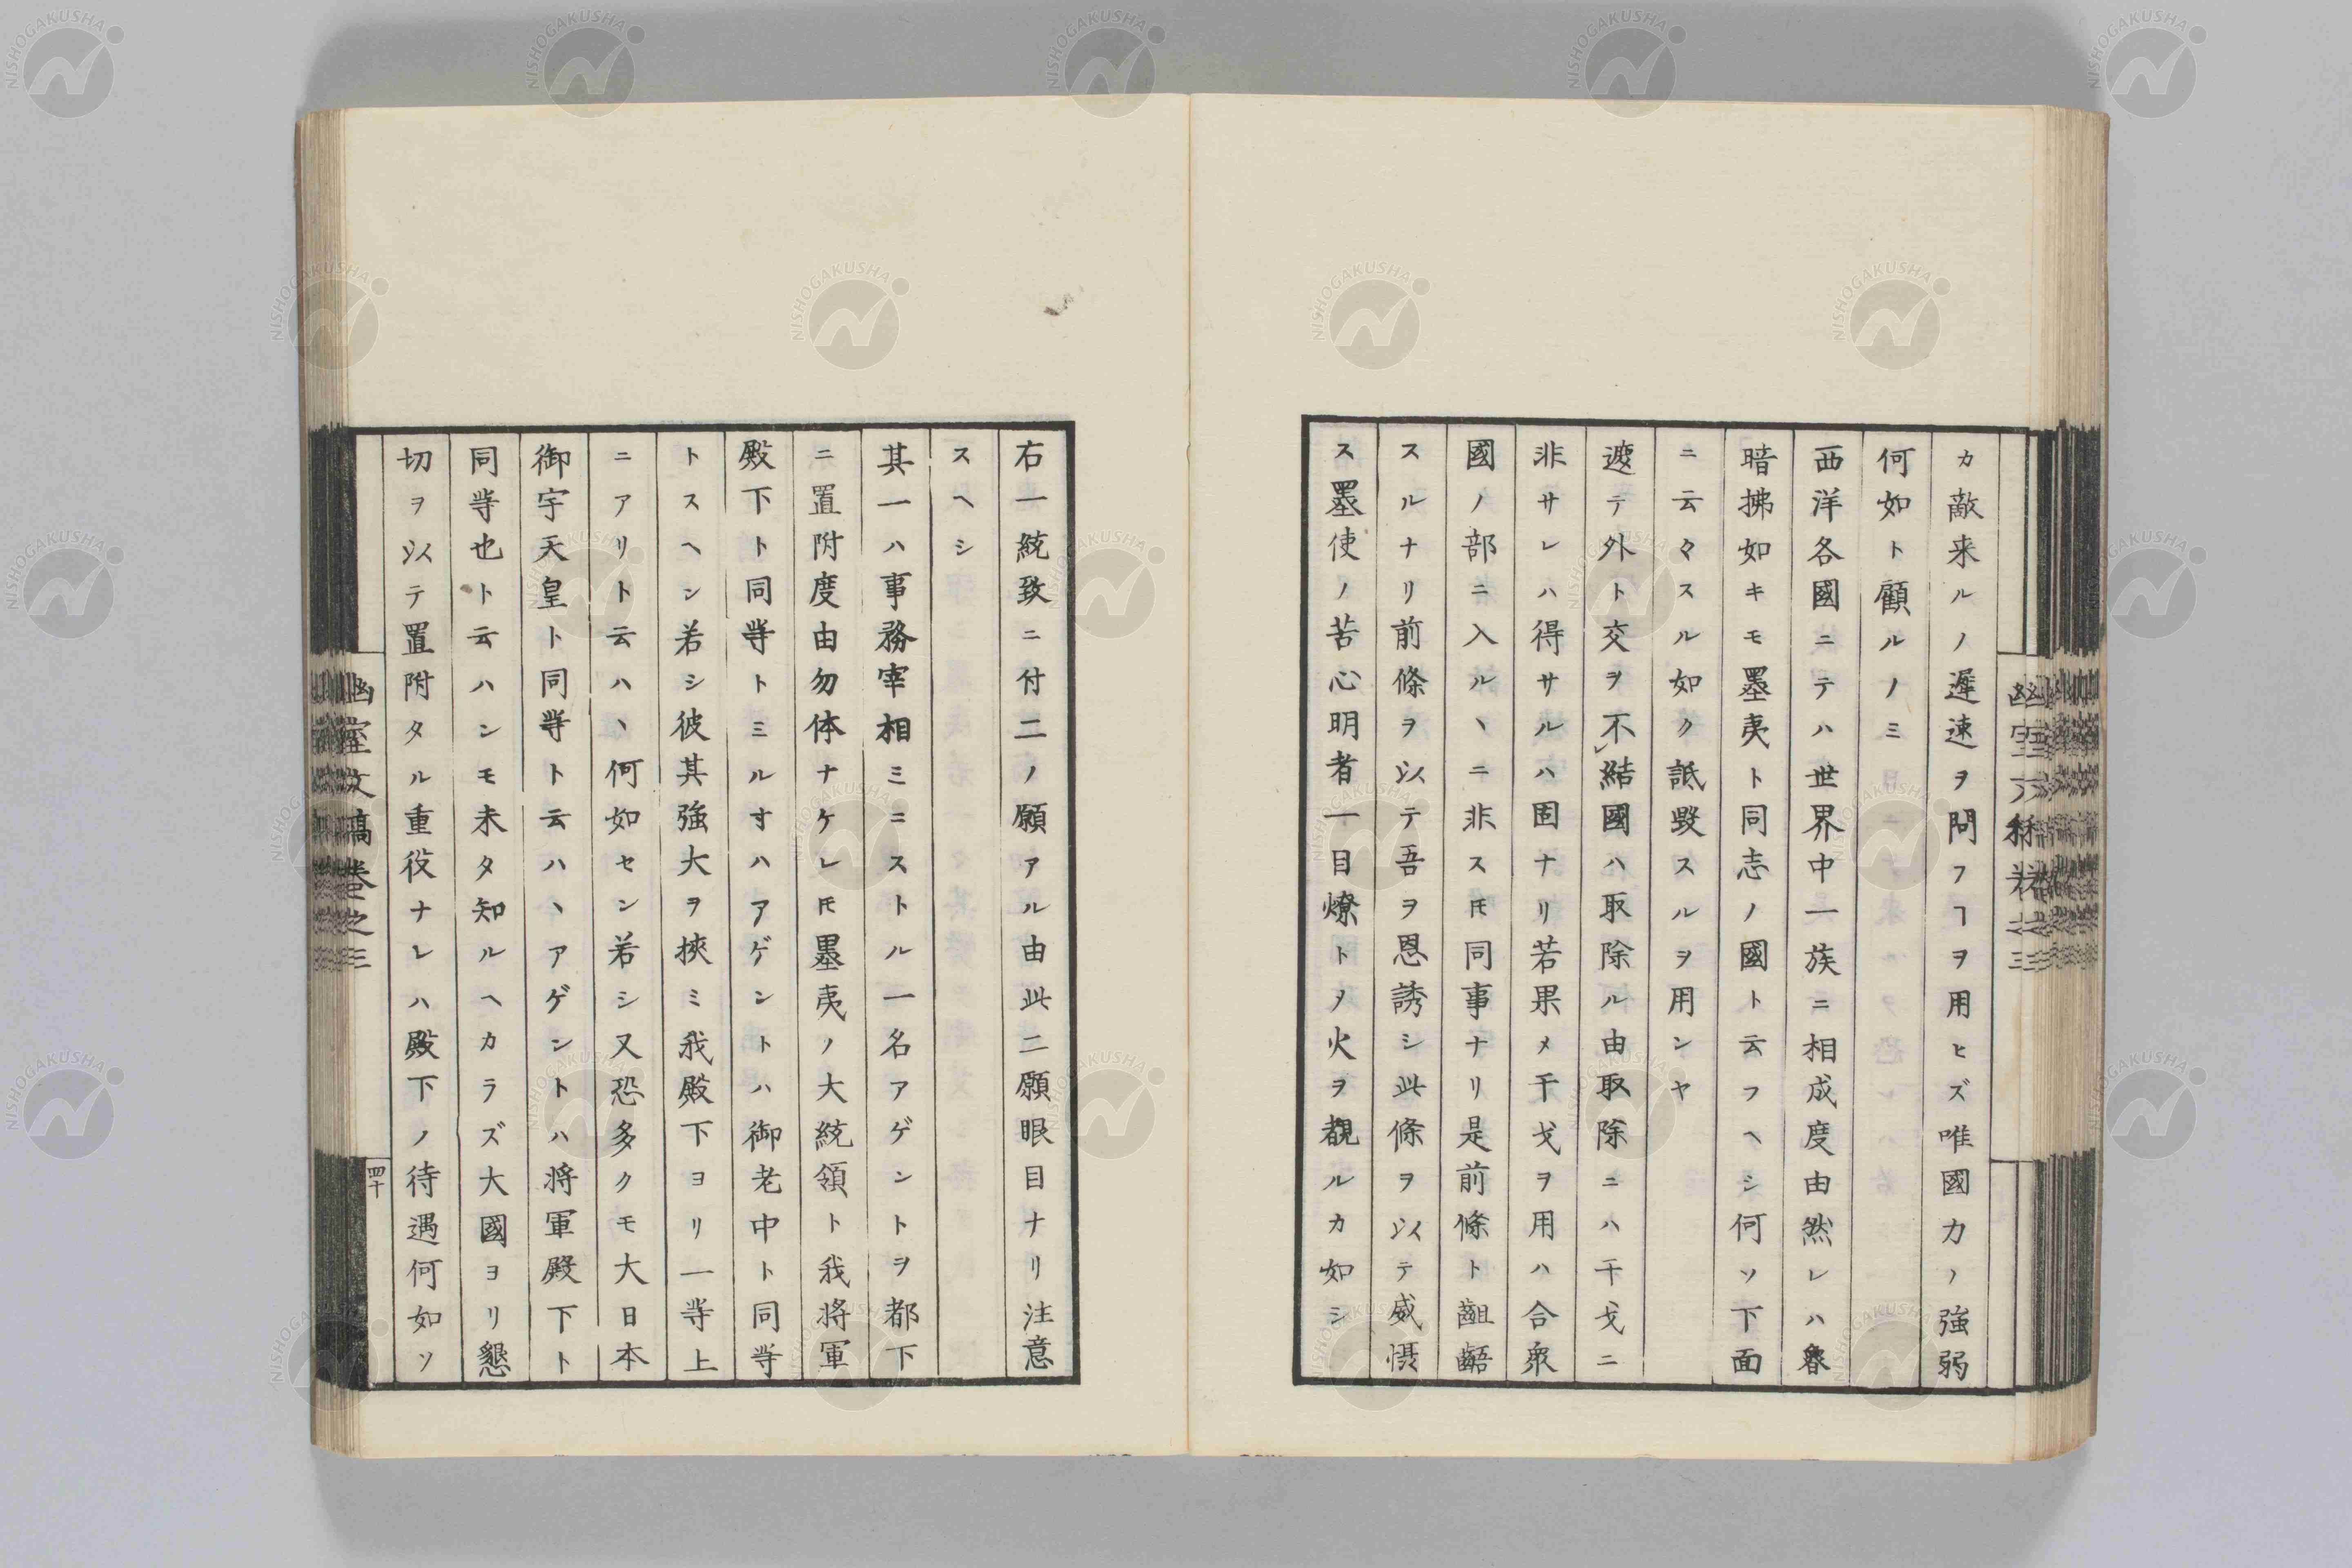 カ敵来ルノ遲速ヲ問フヿヲ用ヒズ唯國力ノ強弱
何如ト顧ルノミ
西洋各國ニテハ世界中一族ニ相成度由然レハ魯
暗拂如キモ墨夷ト同志ノ國ト云フヘシ何ソ下面
ニ云々スル如ク詆毀スルヲ用ンヤ
遮テ外ト交ヲ不結國ハ取除ル由取除ニハ干戈ニ
非サレハ得サルハ固ナリ若果メ干戈ヲ用ハ合衆
國ノ部ニ入ルヽニ非スㇳモ同事ナリ是前條ト齟齬
スルナリ前條ヲ以テ吾ヲ恩誘シ此條ヲ以テ威慑
ス墨使ノ苦心明者一目燎トヲ火ヲ覩ルカ如シ
幽室文稿巻之三
右一統致ニ付二ノ願アル由此二願眼目ナリ注意
スヘシ
其一ハ事務宰相ミニストル一名アゲントヲ都下
ニ置附度由勿体ナケレㇳモ墨夷ノ大統領ト我将軍
殿下ト同等トミルすハアゲントハ御老中ト同等
トスヘン若シ彼其強大ヲ挾ミ我殿下ヨリ一等上
ニアリト云ハヽ何如セン若シ又恐多クモ大日本
御宇天皇ト同等ト云ハヽアゲントハ将軍殿下ト
同等也ト云ハンモ未タ知ルヘカラズ大國ヨリ懇
切ヲ以テ置附タル重役ナレハ殿下ノ待遇何如ソ
幽室文稿巻之三
四十
NISHOGAKUSHA